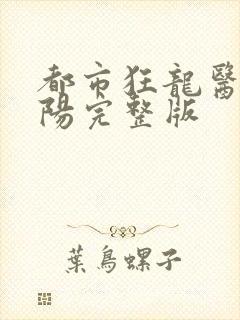 都市狂龍醫
陽完整版
葉鳥螺子